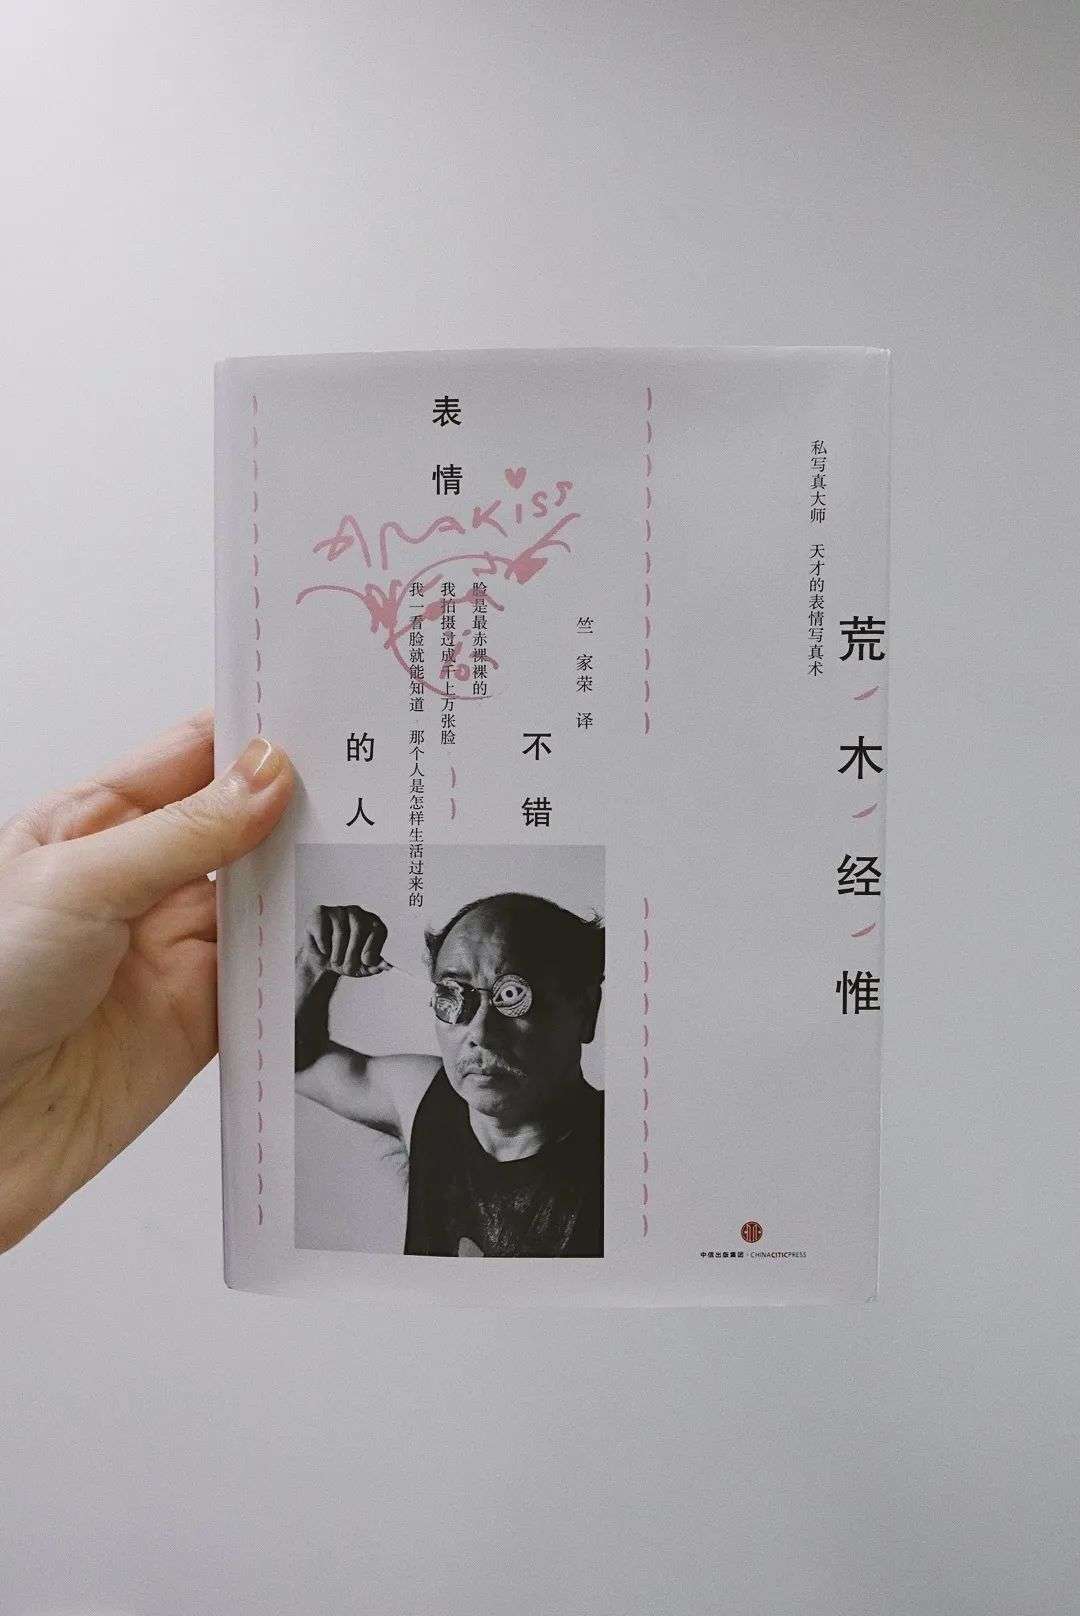 荒木经惟
私写真大师 天才的表情写真术
竺家荣 译
表情
不错
的人
脸是最赤裸裸的
我拍摄过成千上万张脸
我一看脸就能知道 那个人是怎样生活过来的
ARAKISS
中信出版集团·CHINACITICPRESS